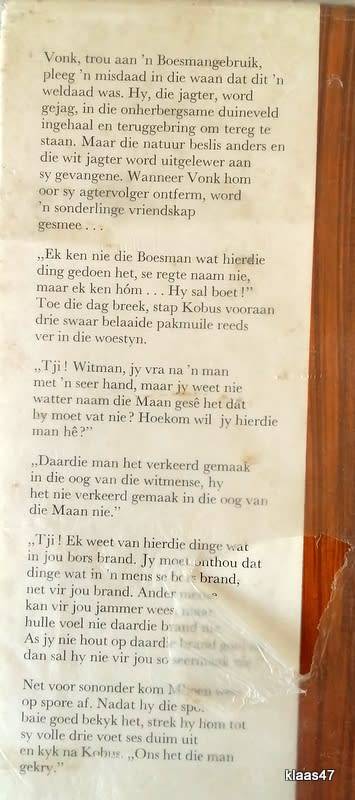 Vonk, trou aan 'n Boesmangebruik,
pleeg 'n misdaad in die waan dat dit 'n
weldaad was. Hy, die jagter, word
gejag, in die onherbergsame duineveld
ingehaal en teruggebring om tereg te
staan. Maar die natuur beslis anders en
die wit jagter word uitgelewer aan
sy gevangene. Wanneer Vonk hom
oor sy agtervolger ontferm, word
'n sonderlinge vriendskap
gesmee . . .
„Ek ken nie die Boesman wat hierdie
ding gedoen het, se regte naam nie,
maar ek ken hóm . . . Hy sal boet !"
Toe die dag breek, stap Kobus vooraan
drie swaar belaaide pakmuile reeds
ver in die woestyn.
„Tji ! Witman, jy vra na 'n man
met 'n seer hand, maar jy weet nie
watter naam die Maan gesê het dat
hy moet vat nie ? Hoekom wil jy hierdie
man hê?"
„Daardie man het verkeerd gemaak
in die oog van die witmense, hy
het nie verkeerd gemaak in die oog van
die Maan nie."
„Tji ! Ek weet van hierdie dinge wat
in jou bors brand. Jy moet onthou dat
dinge wat in 'n mens se bors brand,
net vir jou brand. Ander
kan vir jou jammer wees, maar
hulle voel nie daardie brand nie
As jy nie hout op daardie brand
dan sal hy nie vir jou so
Net voor sononder kom
op spore af. Nadat hy die
baie goed bekyk het, strek hy hom tot
sy volle drie voet ses duim uit
en kyk na Kobus. „Ons het die man
gekry."
klaas47